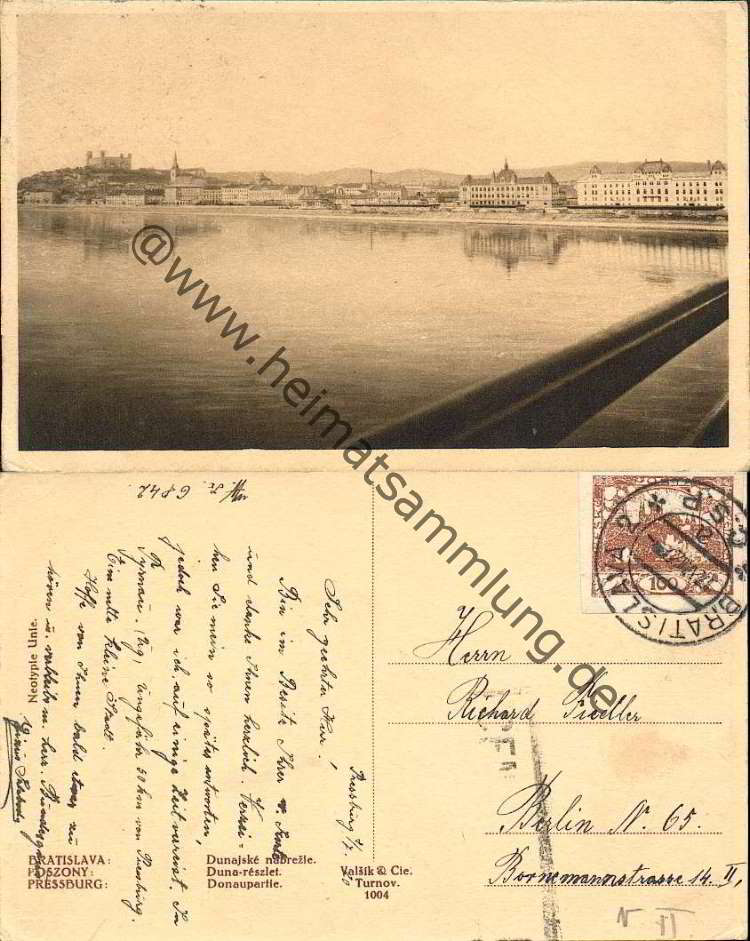 @www.heimatsammlung.de
Nr. 6842
Pressburg
Sehr geehrter Herr!
Bin im Besitze Ihrer
und danke Ihnen herzlich. Verzei-
hen Sie mein so spätes antworten,
jedoch war ich auf einige Zeit verreist. In
Tyrnau. ungefähr 50 km von Pressburg.
Eine nette kleine Stadt.
Hoffe von Ihnen bald etwas zu
hören u. verbleibe m. herz.
Neotypie Unie.
BRATISLAVA: Dunajské nábrežie.
POSZONY: Duna-részlet.
PRESSBURG: Donaupartie.
Valšík & Cie.
Turnov.
1004
BRATISLAVA 2
Č.S.P.
100
Herrn
Richard Fiedler
Berlin N. 65.
Bornemannstrasse 14. II,
N II